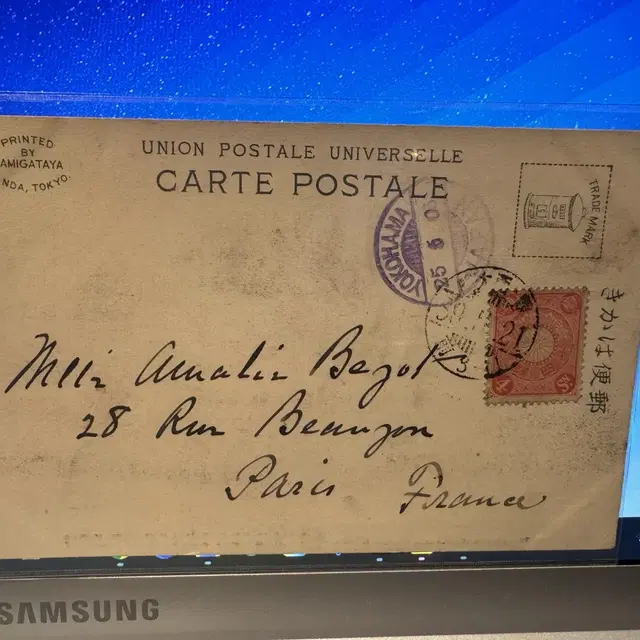 PRINTED
BY
AMIGATAYA
NDA, TOKYO.
UNION POSTALE UNIVERSELLE
CARTE POSTALE
TRADE MARK
YOKOHAMA
25 5 0
21
きかは便郵
Mlle Amalie Bezol
28 Rue Beaujon
Paris France
SAMSUNG